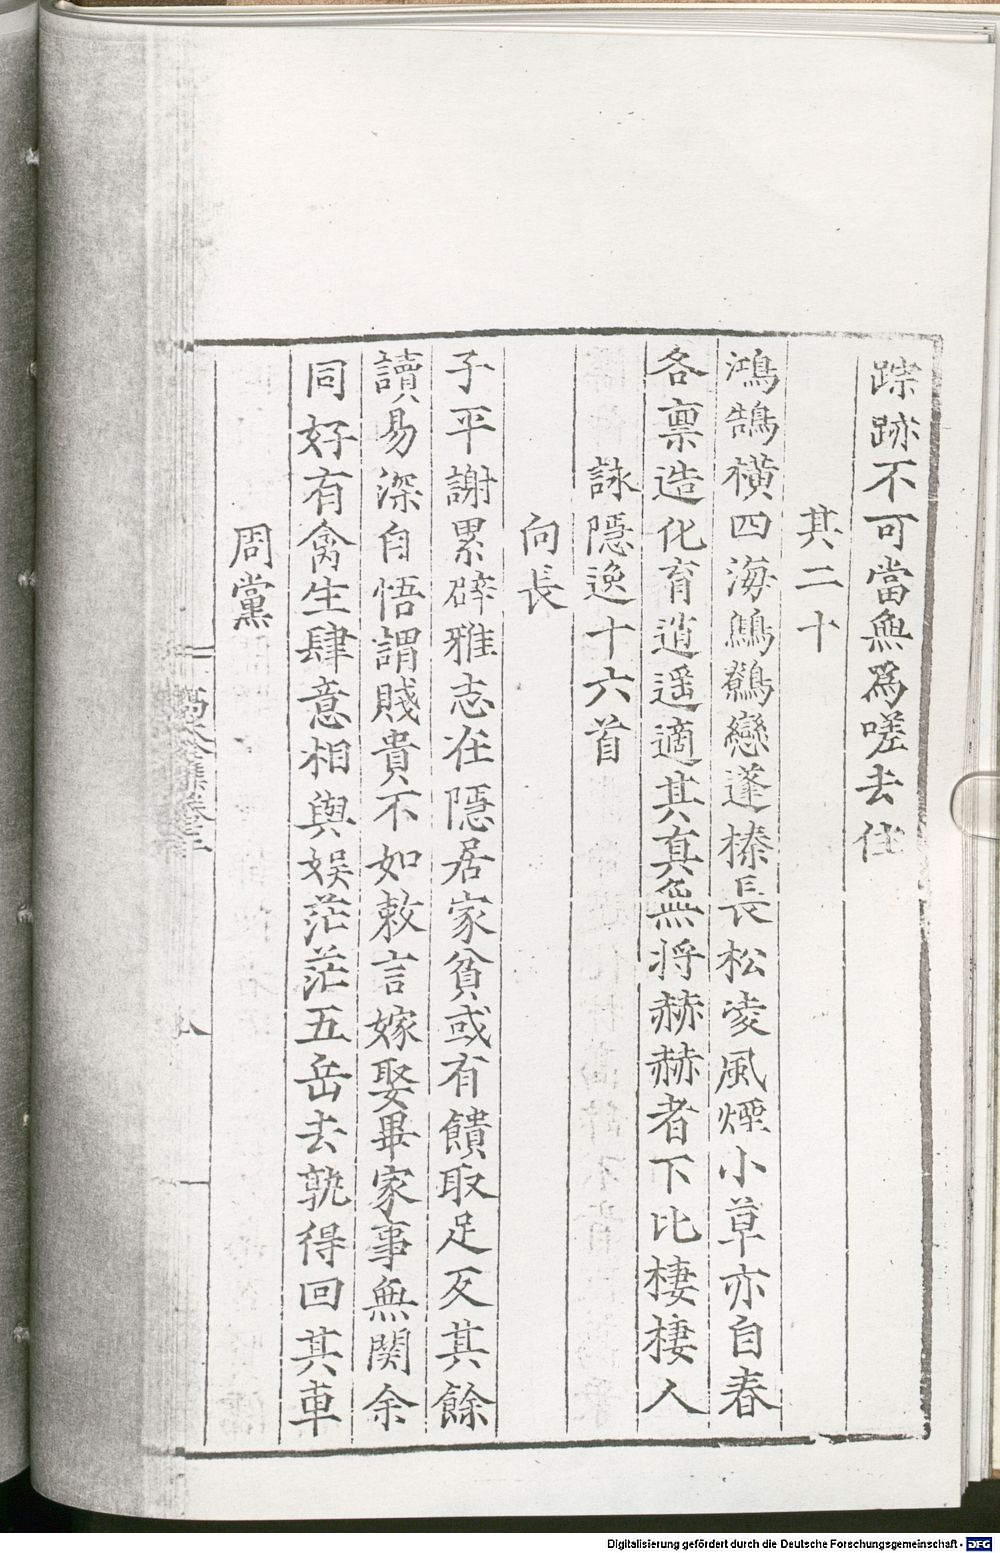 踪跡不可當無爲嗟去住
其二十
鴻鵠橫四海鷦鷯戀蓬榛長松凌風煙小草亦自春
各禀造化育逍遥適其真無將赫赫者下比棲棲人
詠隱逸十六首
向長
子平謝累辟雅志在隱居家貧或有饋取足反其餘
讀易深自悟謂賤貴不如敕言嫁娶畢家事無関余
同好有禽生肆意相與娱茫茫五岳去孰得回其車
周黨
Digitalisierung gefördert durch die Deutsche Forschungsgemeinschaft - DFG